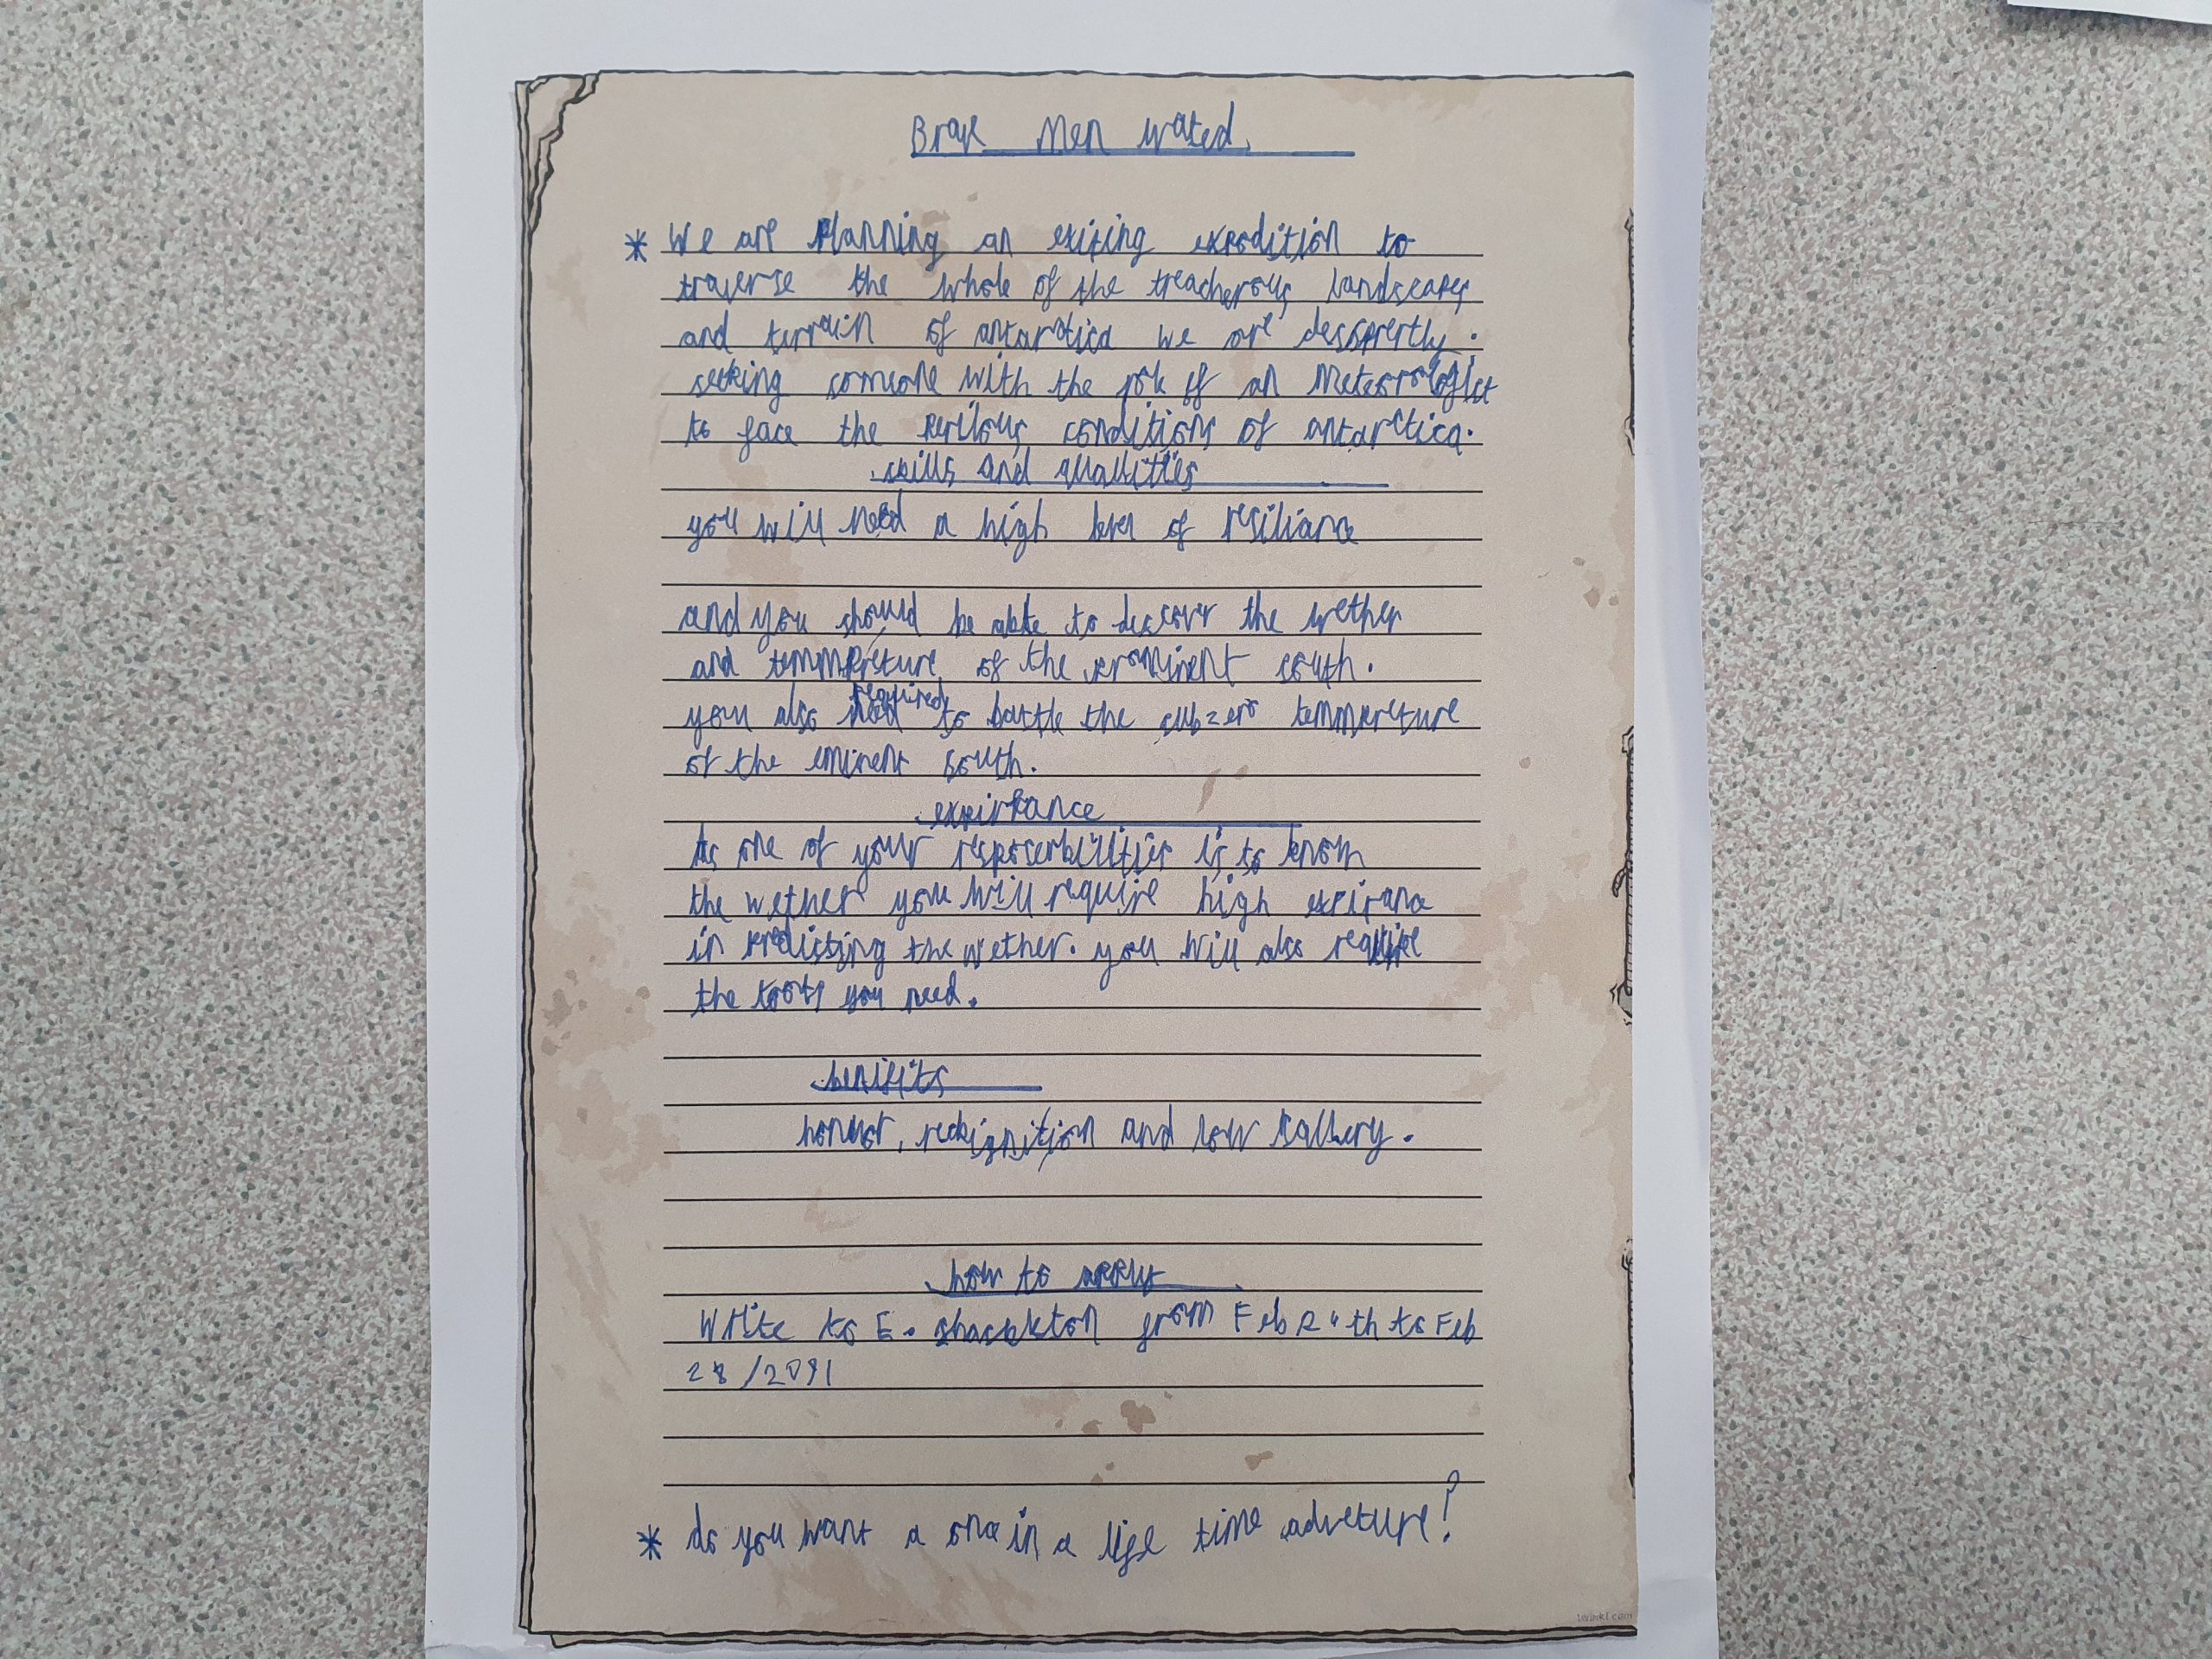 Brave Men Wated.
* We are Planning an exiting expedition to
traverse the whole of the treacherous landscapes
and terrain of antarctica we are dessprertly.
seeking someone with the role of an Meteorologist
to face the perilous conditions of antarctica.
skills and quallities
you will need a high level of resiliance
and you should be able to descover the wether
and temmpreture of the prominent south.
you also required to battle the subzero temmpreture
of the eminent south.
expiriance
As one of your is to know
the wether you will require high expirance
in predicting the wether. you will also require
the tools you need.
benifits
honuor, reckignition and low sallery.
how to apply
Write to E. shackleton from Feb th to Feb
28/2091
* do you want a once in a life time adveture?
twinkl.com